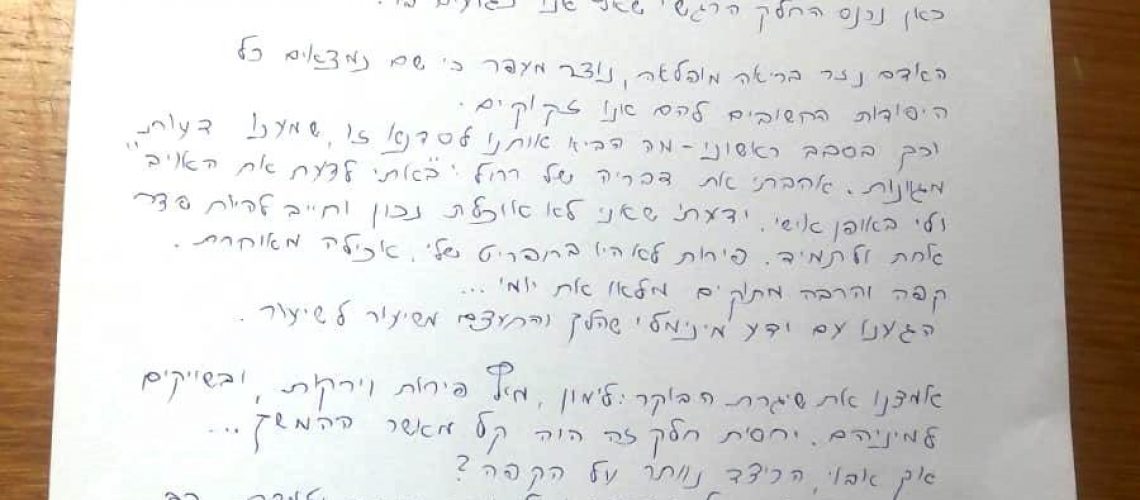 כאן נכנס החלק הרגשי שאני אנו נוגעים בו.
האדם נזר בריאה מופלאה, נוצר מעפר כי שם נמצאים כל
היסודות החשובים להם אנו זקוקים.
וכך בסבב ראשוני - מה הביא אותנו לסדנא זו, שמענו דעות
מגוונות. אהבתי את דבריה של רחל: "באתי לדעת את האויב"
ולי באופן אישי. ידעתי שאני לא אוכלת נכון וחייב להיות סדר
אחת ולתמיד. פירות לא היו בתפריט שלי. אכילה מאוחרת.
קפה והרבה מתוקים מלאו את יומי...
הגענו עם ידע מינימלי שהלך והתעצם משיעור לשיעור.
אמצנו את שיגרת הבוקר: לימון, מיץ פירות וירקות, ובשייקים
למיניהם. יחסית חלק זה היה קל מאשר ההמשך...
איך אבוי, הכיצד נוותר על הקפה?